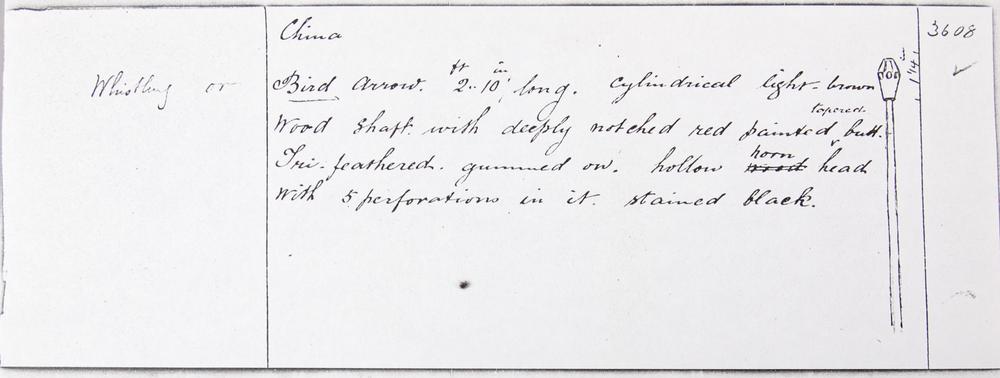 China
3608
Whistling or Bird arrow. 2 ft.. 10 in, long. Cylindrical light-brown
wood shaft. with deeply notched red painted tapered butt.
Tri-feathered. gummed on. hollow wood horn head
with 5 perforations in it. stained black.